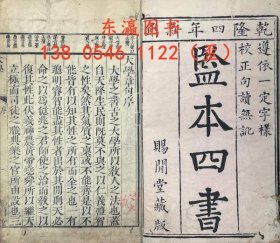 138 0546 1122
乾隆四年
遵依一定字樣
校正句讀無訛
監本四書
賜閒堂藏版
大學章句序
大學之書古之大學所以教人之法也蓋
自天降生民則既莫不與之以仁義禮智
之性矣然其氣質之稟或不能齊是以不
能皆有以知其性之所有而全之也一有
聰明睿智能盡其性者出於其間則天必
命之以為億兆之君師使之治而教之以
復其性此伏羲神農黃帝堯舜所以繼天
立極而司徒之職典樂之官所由設也三